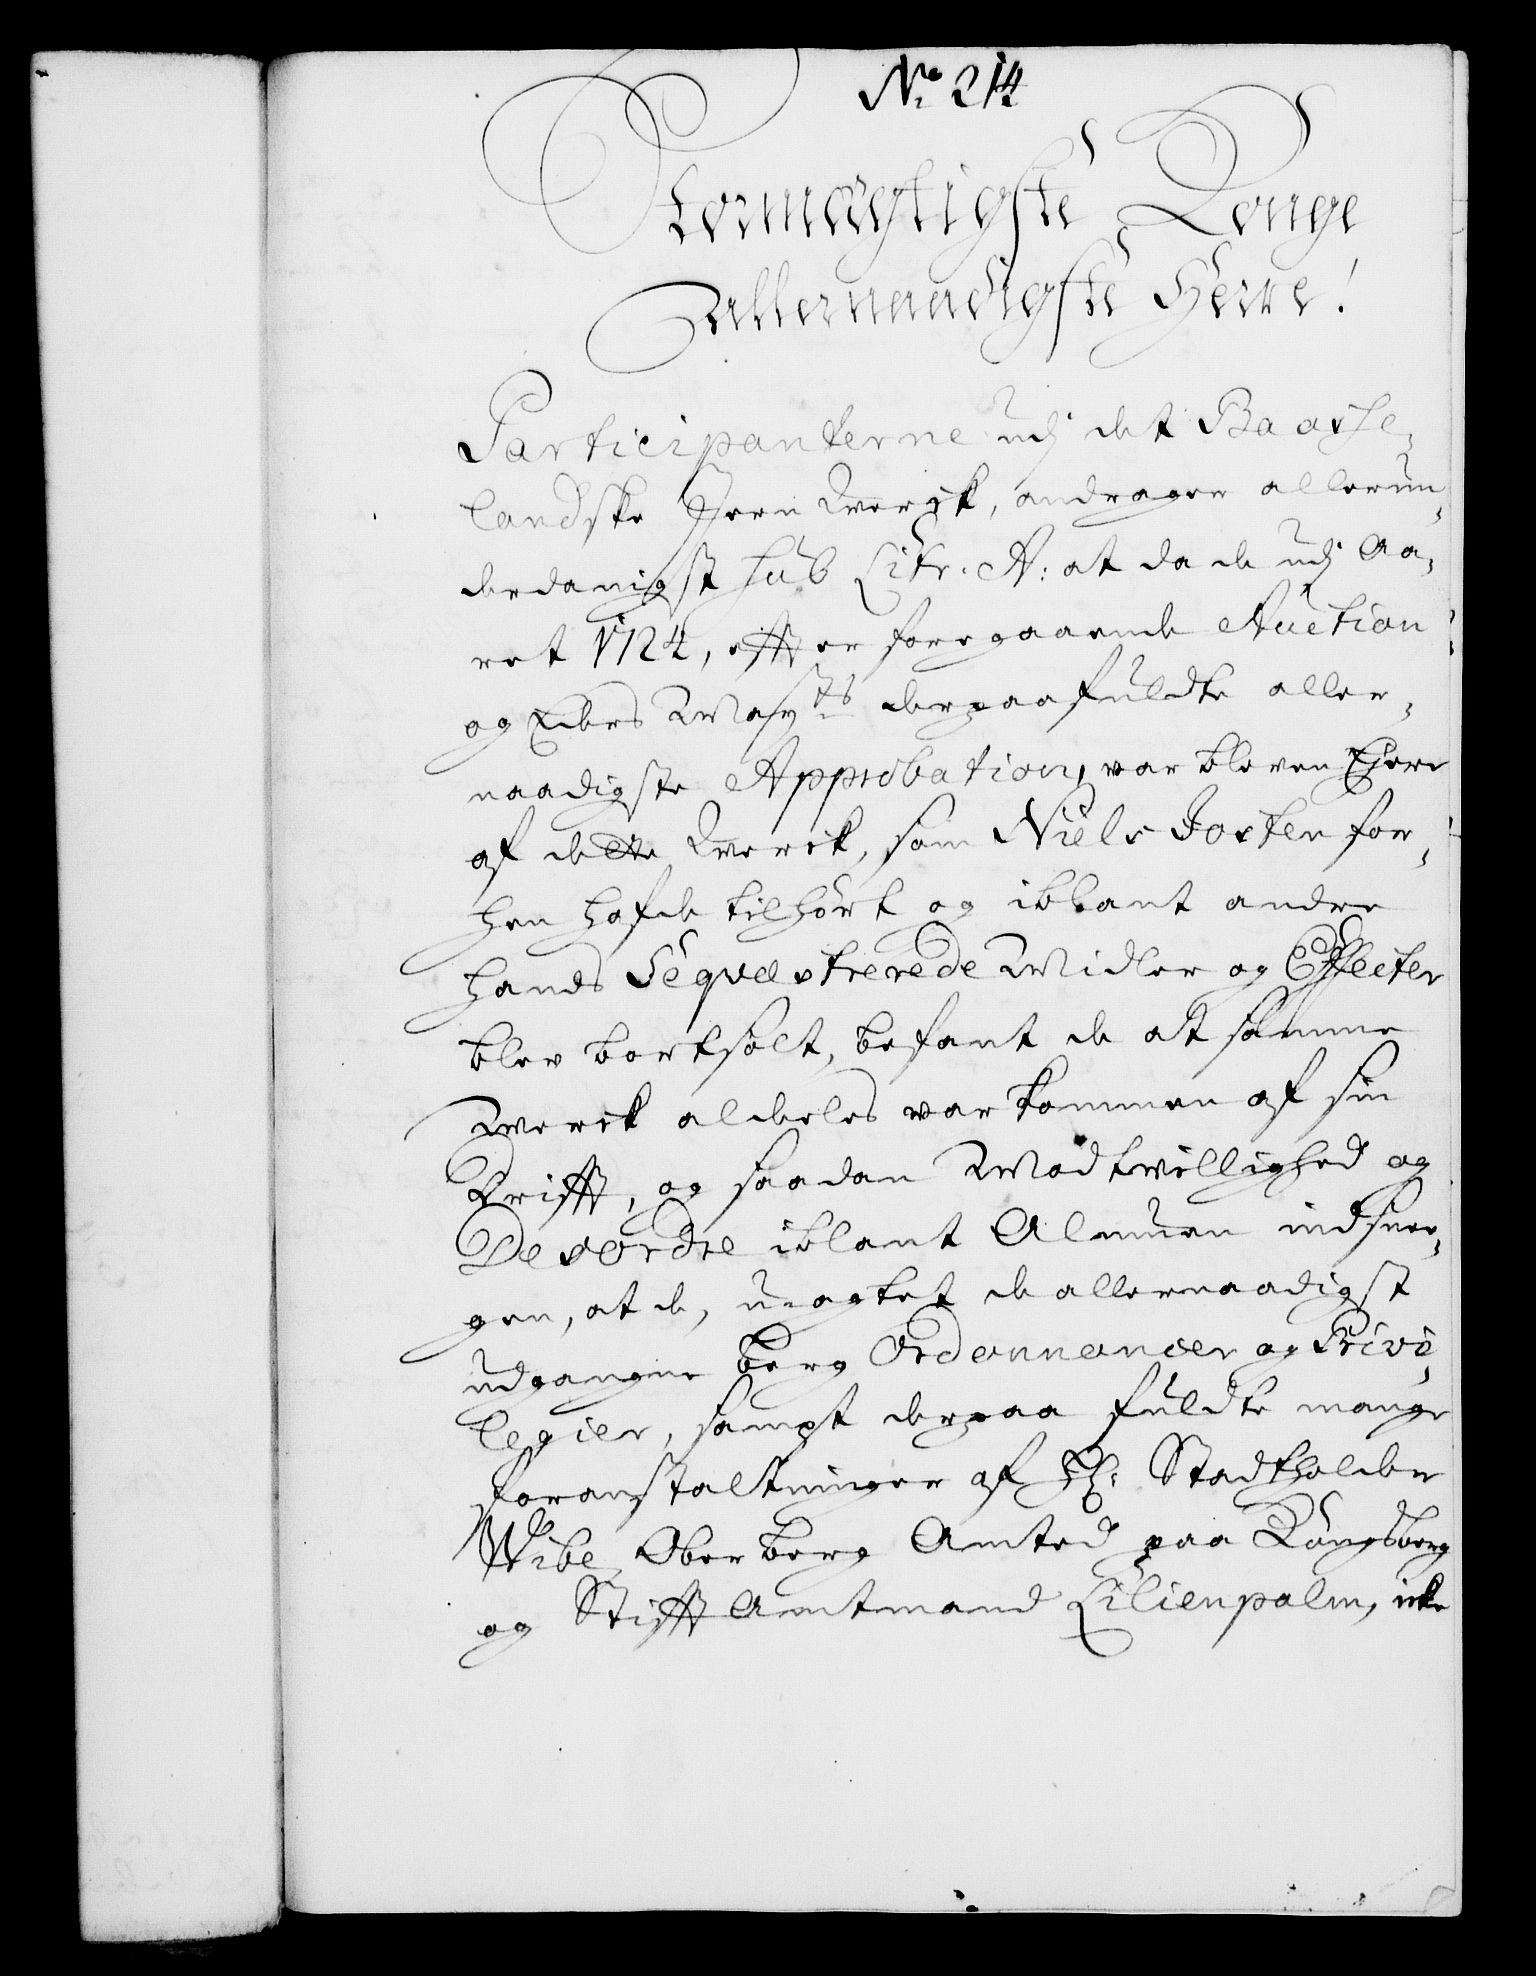 No 214
Stormægtigste Konge
Allernaadigste Herre!
Participanterne udj det Baashe-
landske Jern Werck, andrager allerun-
derdanigst sub Litr. A: at da de udj Aa-
ret 1724, effter foregaaende Auction
og Eders Maysts derpaafuldte aller-
naadigste Approbation, var bleven Ejere
af dette Werck, som Niels Jorten for-
hen hafde tilhørt og iblant andre
hands Seqvestrerede Midler og Effecter
blev bortsolt, befant de at samme
Werck aldeles var kommen af sin
Drifft, og saadan Modtwillighed og
Desordre iblant Almuen indsnee-
gen, at de, uagtet de allernaadigst
udgangne Berg Ordonnancer og Privi-
legier, sampt derpaa fuldte mange
foranstaltninger af Hr: Stadtholder
Wibe, Ober Berg Amted paa Kongsberg
og Stifft Amtmand Lilienpalm, icke